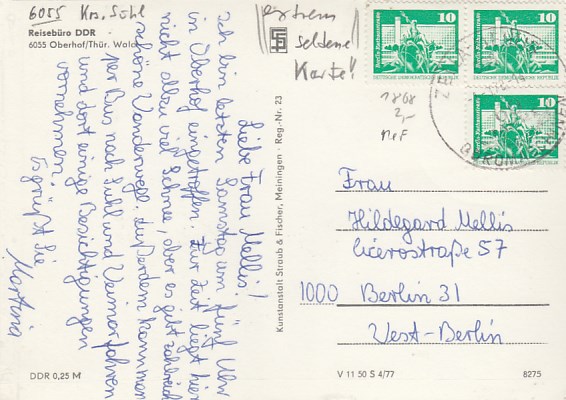 6055 Krs. Suhl
Reisebüro DDR
6055 Oberhof/Thür. Wald
extrem
seltene
Karte!
Liebe Frau Mellis!
Ich bin letzten Samstag um fünf Uhr
in Oberhof eingetroffen. Zur Zeit liegt hier
nicht allzu viel Schnee, aber es gibt zahlreiche
schöne Wanderwege. Außerdem kann man
per Bus nach Suhl und Weimar fahren
und dort einige Besichtigungen
vornehmen.
Es grüßt Sie
Martina
DDR 0,25 M
Kunstanstalt Straub & Fischer, Meiningen - Reg.-Nr. 23
10
Berlin, Neptunbrunnen
DEUTSCHE DEMOKRATISCHE REPUBLIK
10
Berlin, Neptunbrunnen
DEUTSCHE DEMOKRATISCHE REPUBLIK
10
Berlin, Neptunbrunnen
DEUTSCHE DEMOKRATISCHE REPUBLIK
1868
2,-
MeF
Frau
Hildegard Mellis
Cicerostraße 57
1000 Berlin 31
West-Berlin
V 11 50 S 4/77
8275